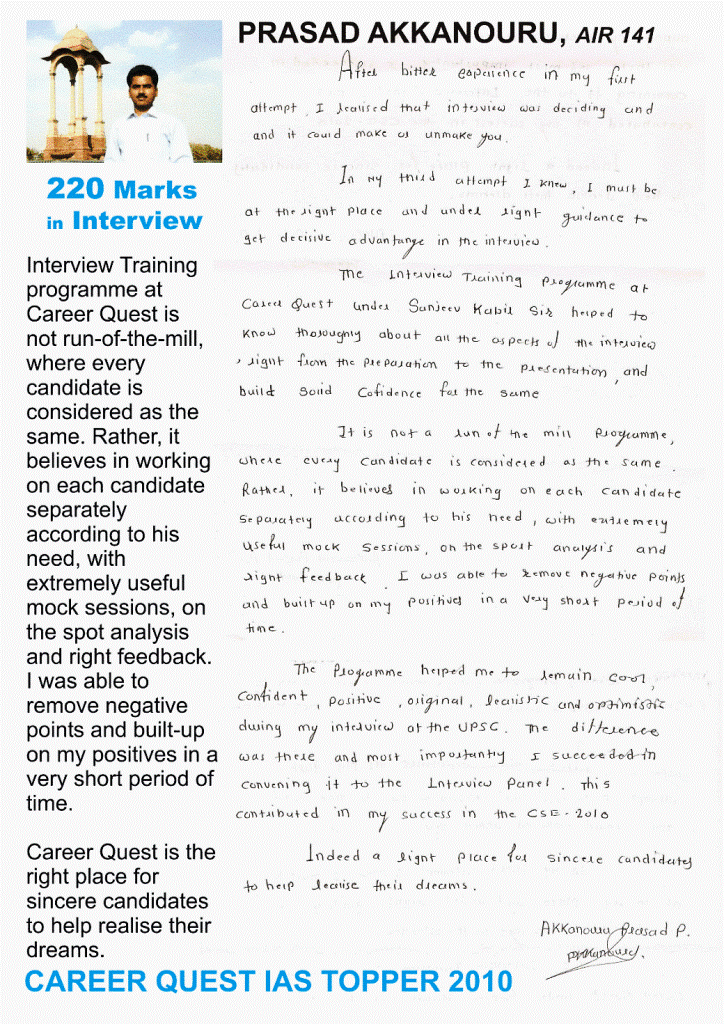 PRASAD AKKANOURU, AIR 141
220 Marks
in Interview
Interview Training
programme at
Career Quest is
not run-of-the-mill,
where every
candidate is
considered as the
same. Rather, it
believes in working
on each candidate
separately
according to his
need, with
extremely useful
mock sessions, on
the spot analysis
and right feedback.
I was able to
remove negative
points and built-up
on my positives in a
very short period of
time.
Career Quest is the
right place for
sincere candidates
to help realise their
dreams.
After bitter experience in my first
attempt, I realised that interview was deciding and
and it could make or unmake you.
In my third attempt I knew, I must be
at the right place and under right guidance to
get decisive advantange in the interview.
The Interview Training Programme at
Career Quest under Sanjeev Kabir Sir helped to
know thoroughly about all the aspects of the interview
, right from the preparation to the presentation, and
build solid Cofidence for the same
It is not a run of the mill Programme,
where every candidate is considered as the same.
Rather, it believes in working on each candidate
separately according to his need, with extremely
useful mock sessions, on the spot analysis and
right feedback. I was able to remove negative points
and built up on my positives in a very short period of
time.
The Programme helped me to remain cool,
confident, positive, original, realistic and optimistic
during my interview at the UPSC. The difference
was there and most importantly I succeeded in
convening it to the Interview Panel. This
contributed in my success in the CSE-2010
Indeed a right place for sincere candidates
to help realise their dreams.
Akkanouru Prasad P.
CAREER QUEST IAS TOPPER 2010